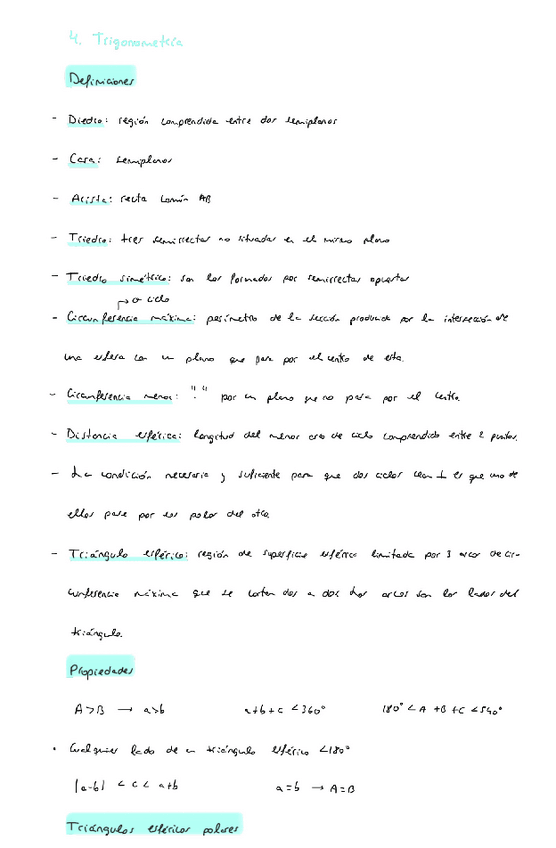 4. Trigonometría
Definiciones
- Diedro: región comprendida entre dos semiplanos
- Cara: semiplanos
- Arista: recta común AB
- Triedro: tres semirrectas no situadas en el mismo plano
- Triedro simétrico: son los formados por semirrectas opuestas
↱ o ciclo
- Circunferencia máxima: perímetro de la sección producida por la intersección de
una esfera con un plano que pasa por el centro de esta.
- Circunferencia menor: " " por un plano que no pasa por el centro.
- Distancia esférica: longitud del menor arco de ciclo comprendido entre 2 puntos.
- La condición necesaria y suficiente para que dos ciclos sean ⊥ es que uno de
ellos pase por los polos del otro.
- Triángulo esférico: región de superficie esférica limitada por 3 arcos de cir-
cunferencia máxima que se cortan dos a dos. Los arcos son los lados del
triángulo.
Propiedades
A>B → a>b a+b+c <360° 180° < A +B +C <540°
· Cualquier lado de un triángulo esférico <180°
|a-b| < c < a+b a=b → A=B
Triángulos esféricos polares